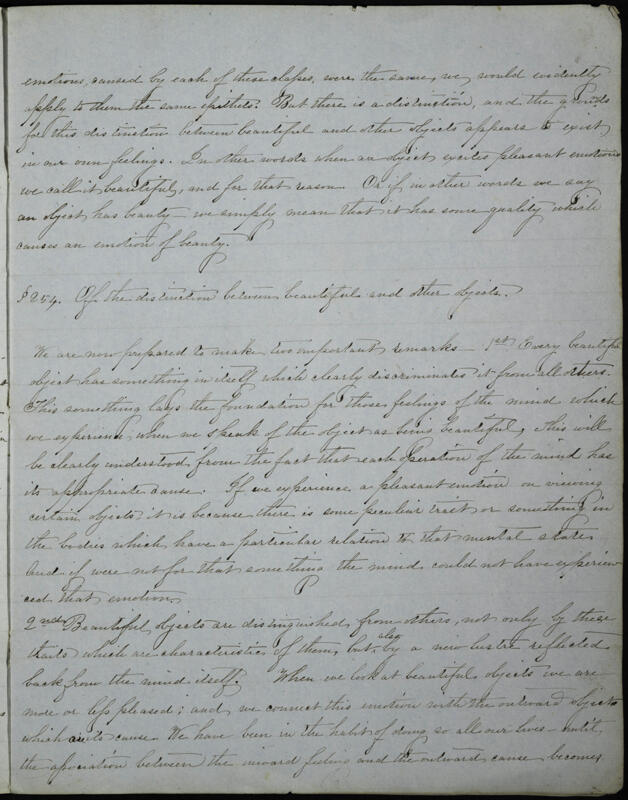 emotions, caused by each of these classes, were the same, we would evidently
apply to them the same epithet. But there is a distinction, and the grounds
for this distinction between beautiful and other objects appears to exist
in our own feelings. In other words when an object excites pleasant emotions
we call it beautiful, and for that reason. Or if in other words we say
an object has beauty we simply mean that it has some quality which
causes an emotion of beauty.
§ 254. Of the distinction between beautiful and other objects.
We are now prepared to make two important remarks 1st Every beautiful
object has something in itself which clearly discriminates it from all others.
This something lays the foundation for those feelings of the mind which
we experience, when we speak of the object as being beautiful, this will
be clearly understood from the fact that each operation of the mind has
its appropriate cause. If we experience a pleasant emotion on viewing
certain objects, it is because there is some peculiar trait or something in
the bodies which have a particular relation to that mental state
And if were not for that something the mind could not have experien
ced that emotion
2nd Beautiful objects are distinguished from others, not only by these
traits which are characteristic of them, but also by a new lustre reflected
back from the mind itself. When we look at beautiful objects we are
more or less pleased; and we connect this emotion with the outward objects
which its cause. We have been in the habit of doing so all our lives until
the association between the inward feeling and the outward cause becomes